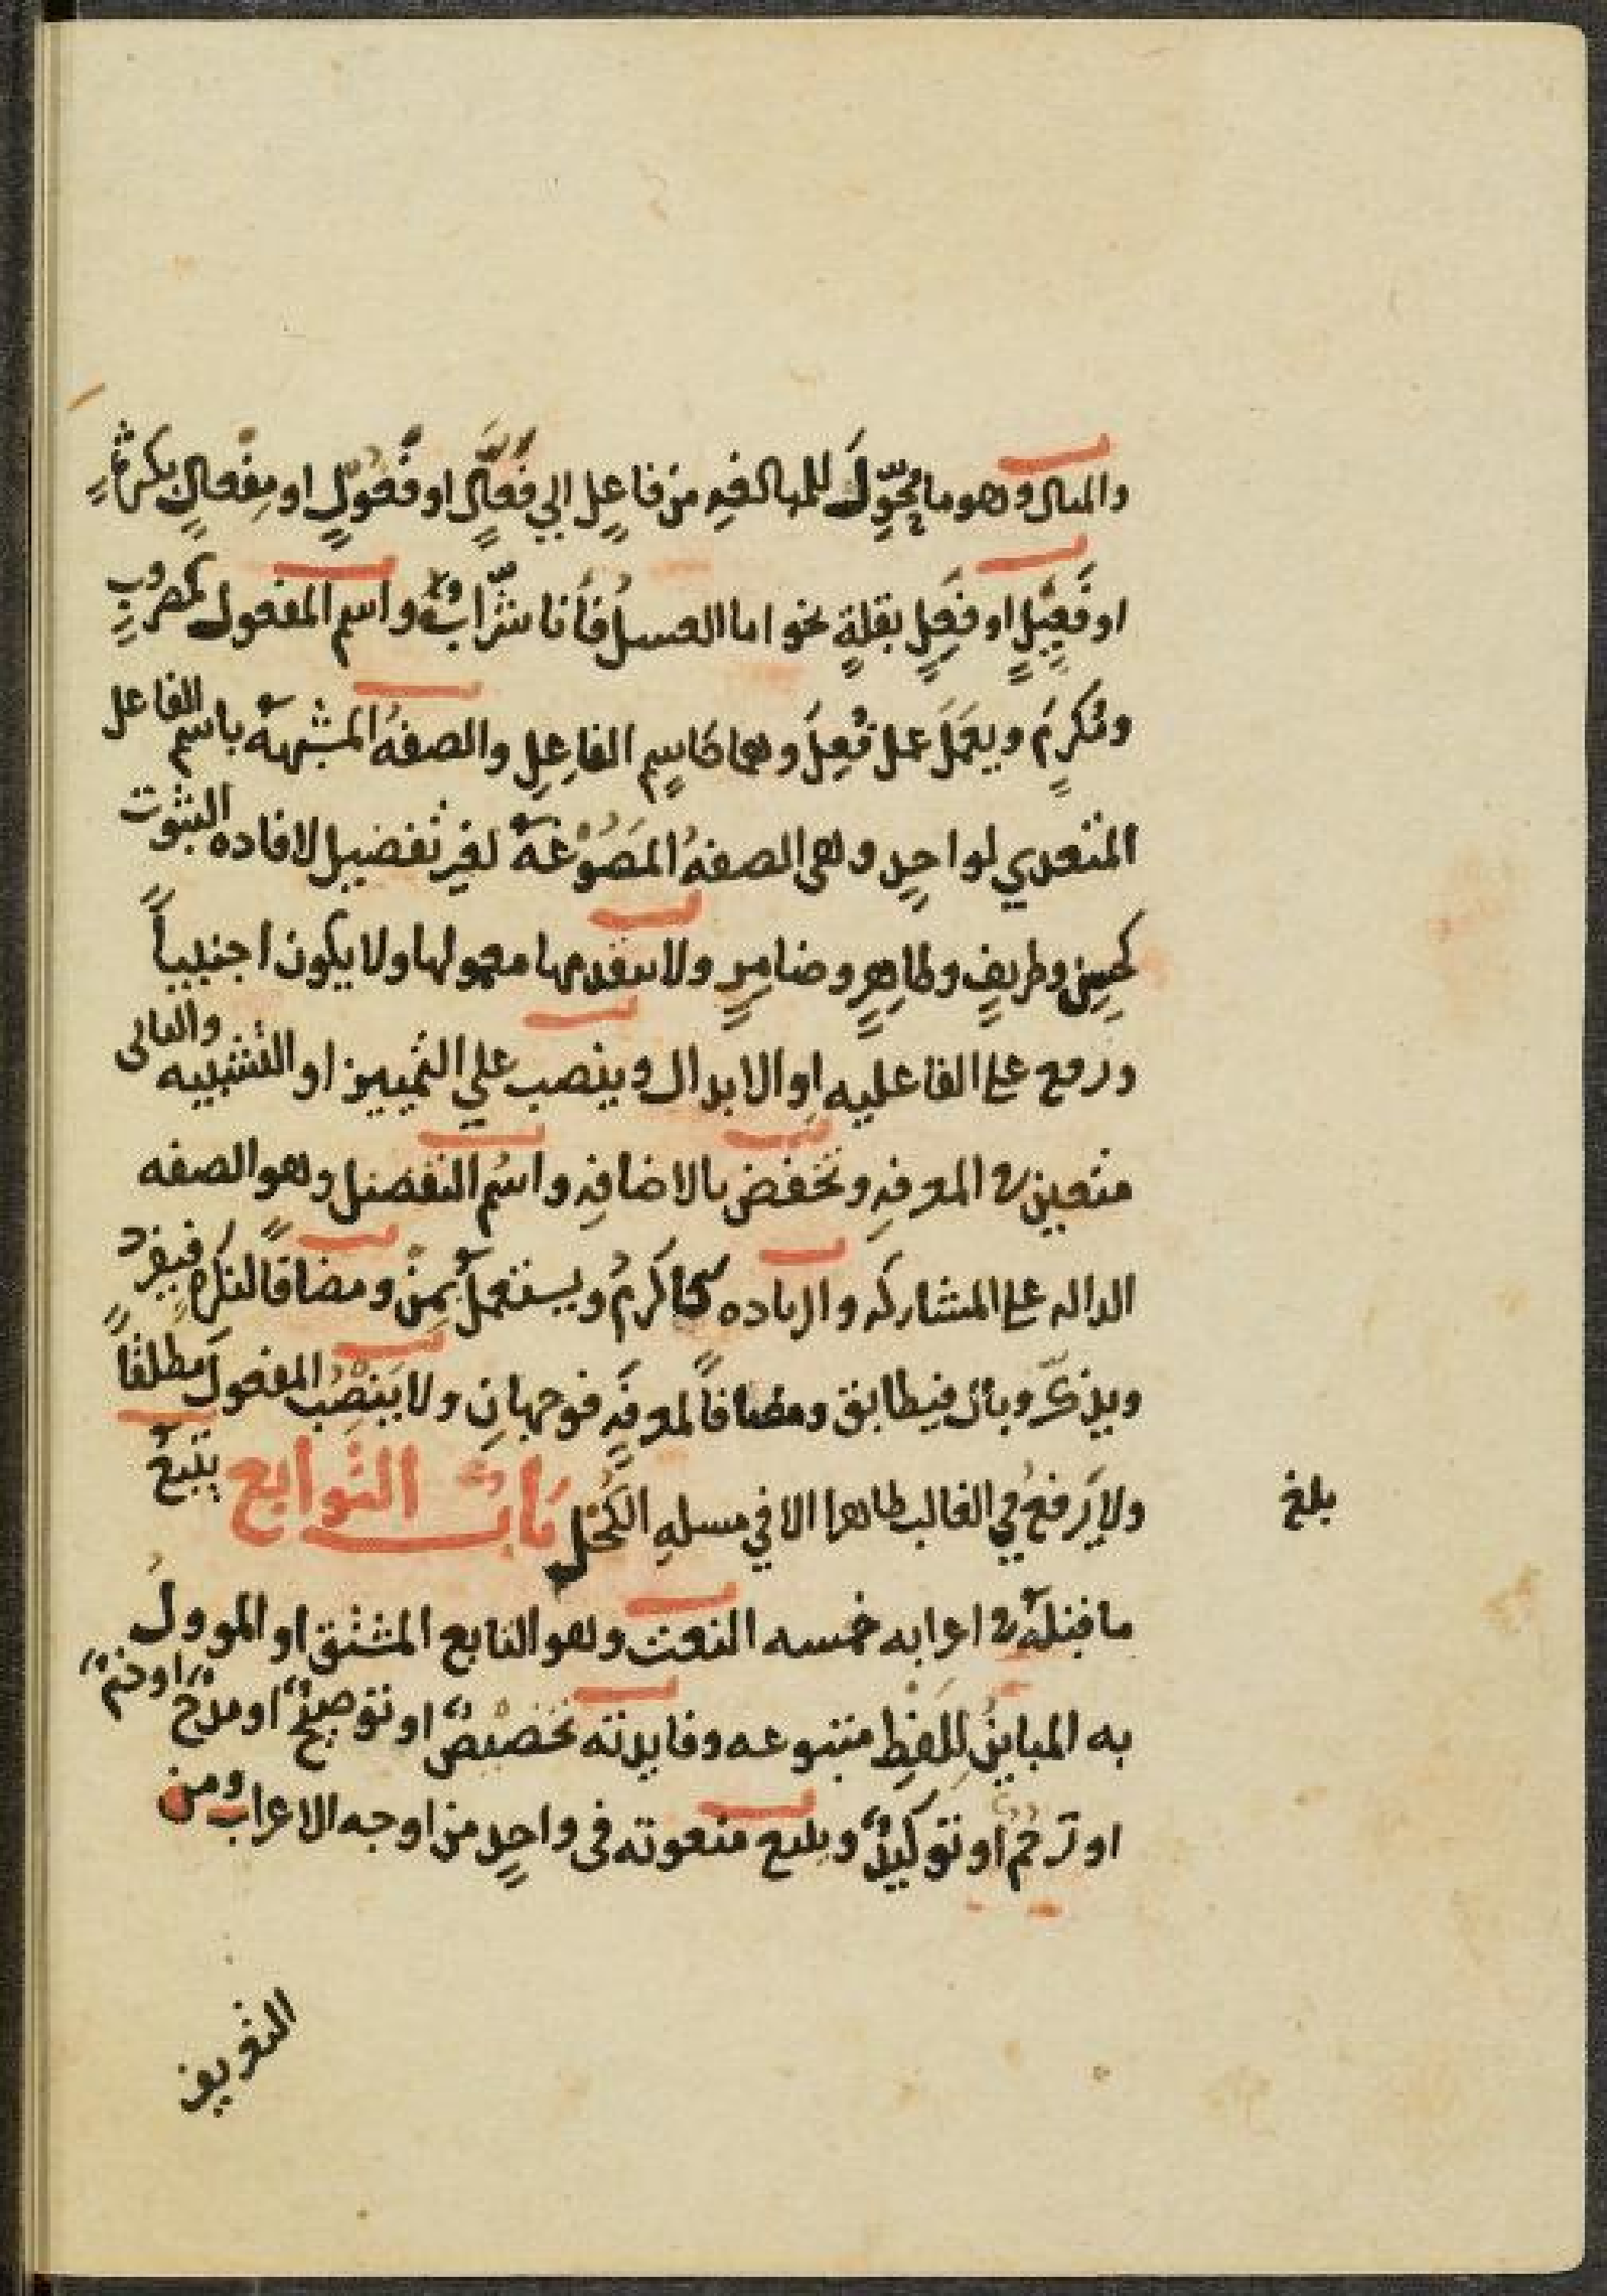 والمثال وهو ما يُحوّلَ للمبالغةِ من فاعلٍ الي فَعّالٍ او فَعُولٍ او مِفْعالٍ بكثرةٍ
او فَعِيلٍ او فَعِلٍ بقلةٍ نحو اما العسلَ فأنا شرّابٌ واسم المفعول كمضروبٍ
ومُكرَمٍ ويعمَلُ عمل فُعِلَ وهما كاسمِ الفاعِلِ والصفهُ المشبهةُ باسم الفاعل
المتعدي لواحدٍ وهى الصفهُ المَصُوْغَةُ لغير تفضيل لافاده الثبوت
كحسنٍ وظريفٍ وطاهرٍ وضامرٍ ولا يتقدمها معمولها ولا يكون اجنبياً
ورفع على الفاعليه او الابدال وينصب علي التمييز او التشبيه والثانى
متعين فى المعرفهِ ويُخفض بالاضافهِ واسْمُ التفضيل وهو الصفه
الداله على المشاركه والزياده كاكرمُ ويستعملُ بمِنْ ومضافاً لنكرهٍ فيفرد
ويذكّر وبأل فيطابق ومضافاً لمعرفهٍ فوجهانِ ولا يَنصِبُ المفعولَ مطلقاً
ولا يَرفعُ في الغالب ظاهرا الا في مسلهِ الكُحْلِ بَابُ التَّوابع يتبعُ
بلغ
ما قبلهُ فى اعرابه خمسه النعت وهو التابع المشتق او الموول
به المباينُ لِلَفظِ متبوعه وفايدته تخصيصٌ او توضيحٌ او مدحٌ او ذمٌ
او ترحمٌ او توكيدٌ ويتبع منعوته فى واحدٍ من اوجه الاعراب ومن
التعريف